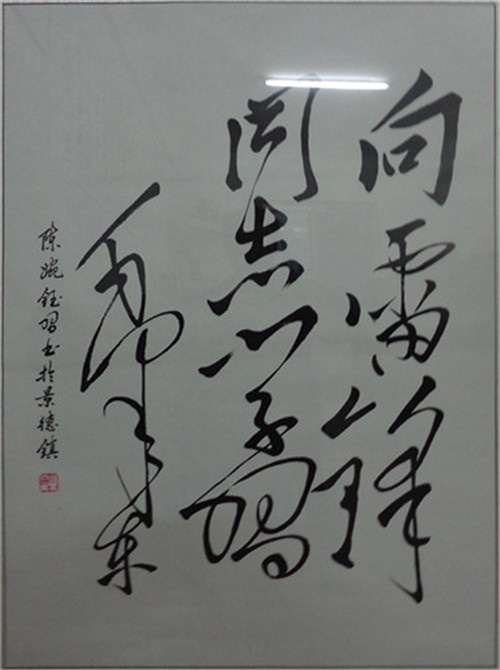 向雷锋
同志学习
毛泽东
陈婉钰习书于景德镇